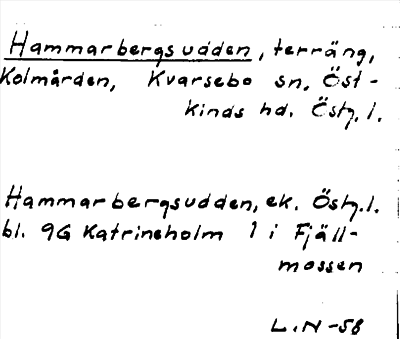 Hammarbergsudden, terräng,
Kolmården, Kvarsebo sn, Öst-
kinds hd. Östg. l.
Hammarbergsudden, ek. Östg. l.
bl. 9G Katrineholm 1 i Fjäll-
mossen
L.N-58